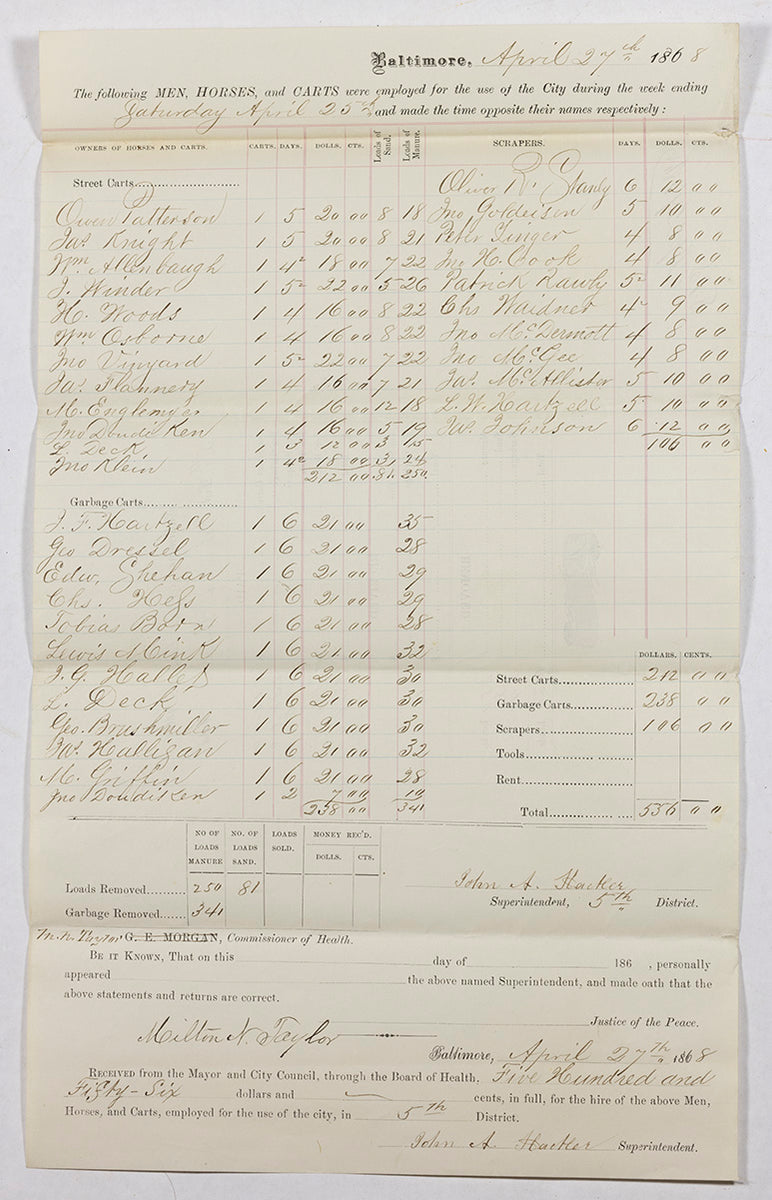 Baltimore, April 27th 1868
The following MEN, HORSES, and CARTS were employed for the use of the City during the week ending
Saturday April 25th and made the time opposite their names respectively:
OWNERS OF HORSES AND CARTS. CARTS. DAYS. DOLLS. CTS. Loads of Sand. Loads of Manure. SCRAPERS. DAYS. DOLLS. CTS.
Street Carts
Oliver R. Stanly 6 12 00
Owen Patterson 1 5 20 00 8 18 Jno Goldeisen 5 10 00
Jas Knight 1 5 20 00 8 21 Peter Singer 4 8 00
Wm Allenbaugh 1 4½ 18 00 7 22 Jno H. Cook 4 8 00
J. Winder 1 5½ 22 00 5 26 Patrick Rawly 5½ 11 00
H. Woods 1 4 16 00 8 22 Chs Waidner 4½ 9 00
Wm Osborne 1 4 16 00 8 22 Jno McDermott 4 8 00
Jno Vinyard 1 5½ 22 00 7 22 Jno McGee 4 8 00
Jas Flannery 1 4 16 00 7 21 Jas McAllister 5 10 00
M. Englemyer 1 4 16 00 12 18 L. W. Hartzell 5 10 00
Jno Doudiken 1 4 16 00 5 19 Jas Johnson 6 12 00
L. Deck 1 3 12 00 3 15 106 00
Jno Klein 1 4½ 18 00 3 24
212 00 81 250
Garbage Carts
J. F. Hartzell 1 6 21 00 35
Geo Dressel 1 6 21 00 28
Edw. Shehan 1 6 21 00 29
Chs. Hess 1 6 21 00 29
Tobias Born 1 6 21 00 28
Lewis Mink 1 6 21 00 32
DOLLARS. CENTS.
J. G. Haller 1 6 21 00 30 Street Carts 212 00
L. Deck 1 6 21 00 30 Garbage Carts 238 00
Geo. Brushmiller 1 6 21 00 30 Scrapers 106 00
Jas. Halligan 1 6 21 00 32 Tools
M. Griffin 1 6 21 00 28 Rent
Jno Doudiken 1 2 7 00 10
238 00 341 Total 556 00
NO OF LOADS MANURE NO. OF LOADS SAND. LOADS SOLD. MONEY REC'D. DOLLS. CTS.
Loads Removed 250 81 John A. Hackler
Superintendent, 5th District.
Garbage Removed 341
M. N. Taylor G. E. MORGAN, Commissioner of Health.
BE IT KNOWN, That on this day of 186 , personally
appeared the above named Superintendent, and made oath that the
above statements and returns are correct.
Justice of the Peace.
Milton N. Taylor
Baltimore, April 27th 1868
RECEIVED from the Mayor and City Council, through the Board of Health, Five Hundred and
Fifty-Six dollars and cents, in full, for the hire of the above Men,
Horses, and Carts, employed for the use of the city, in 5th District.
John A. Hackler Superintendent.